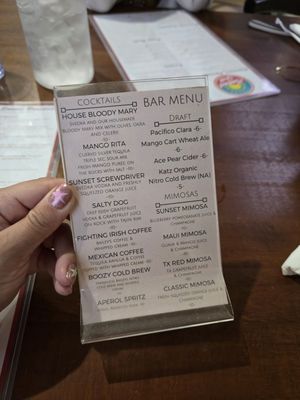 COCKTAILS
HOUSE BLOODY MARY
SVEDKA AND OUR HOUSEMADE
BLOODY MARY MIX WITH OLIVES, OKRA
AND CELERY
MANGO RITA
CUERVO SILVER TEQUILA
TRIPLE SEC, SOUR AND
FRESH MANGO PUREE ON THE
ROCKS WITH SALT
SUNSET SCREWDRIVER
SVEDKA VODKA AND FRESHLY
SQUEEZED ORANGE JUICE
SALTY DOG
DEEP EDDY GRAPEFRUIT
VODKA & GRAPEFRUIT JUICE
ON ROCK WITH TAJIN RIM
FIGHTING IRISH COFFEE
BAILEYS COFFEE &
WHIPPED CREAM
MEXICAN COFFEE
TEQUILA, KAHLUA & COFFEE
TOPPED WITH WHIPPED CREAM
BOOZY COLD BREW
APEROL SPRITZ
BAR MENU
DRAFT
Pacifico Clara -6-
Mango Cart Wheat Ale
-6-
Ace Pear Cider -6-
Katz Organic
Nitro Cold Brew (NA)
-5-
MIMOSAS
SUNSET MIMOSA
BLUEBERRY POMEGRANATE JUICE &
CHAMPAGNE
MAUI MIMOSA
GUAVA & MANGO JUICE &
CHAMPAGNE
TX RED MIMOSA
TX GRAPEFRUIT JUICE
& CHAMPAGNE
CLASSIC MIMOSA
FRESH SQUEEZED ORANGE JUICE &
CHAMPAGNE